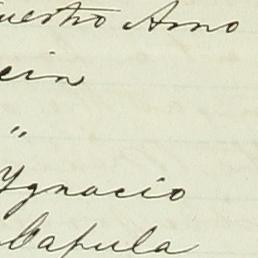 uestro Amo
ein
"
Ygnacio
Capula